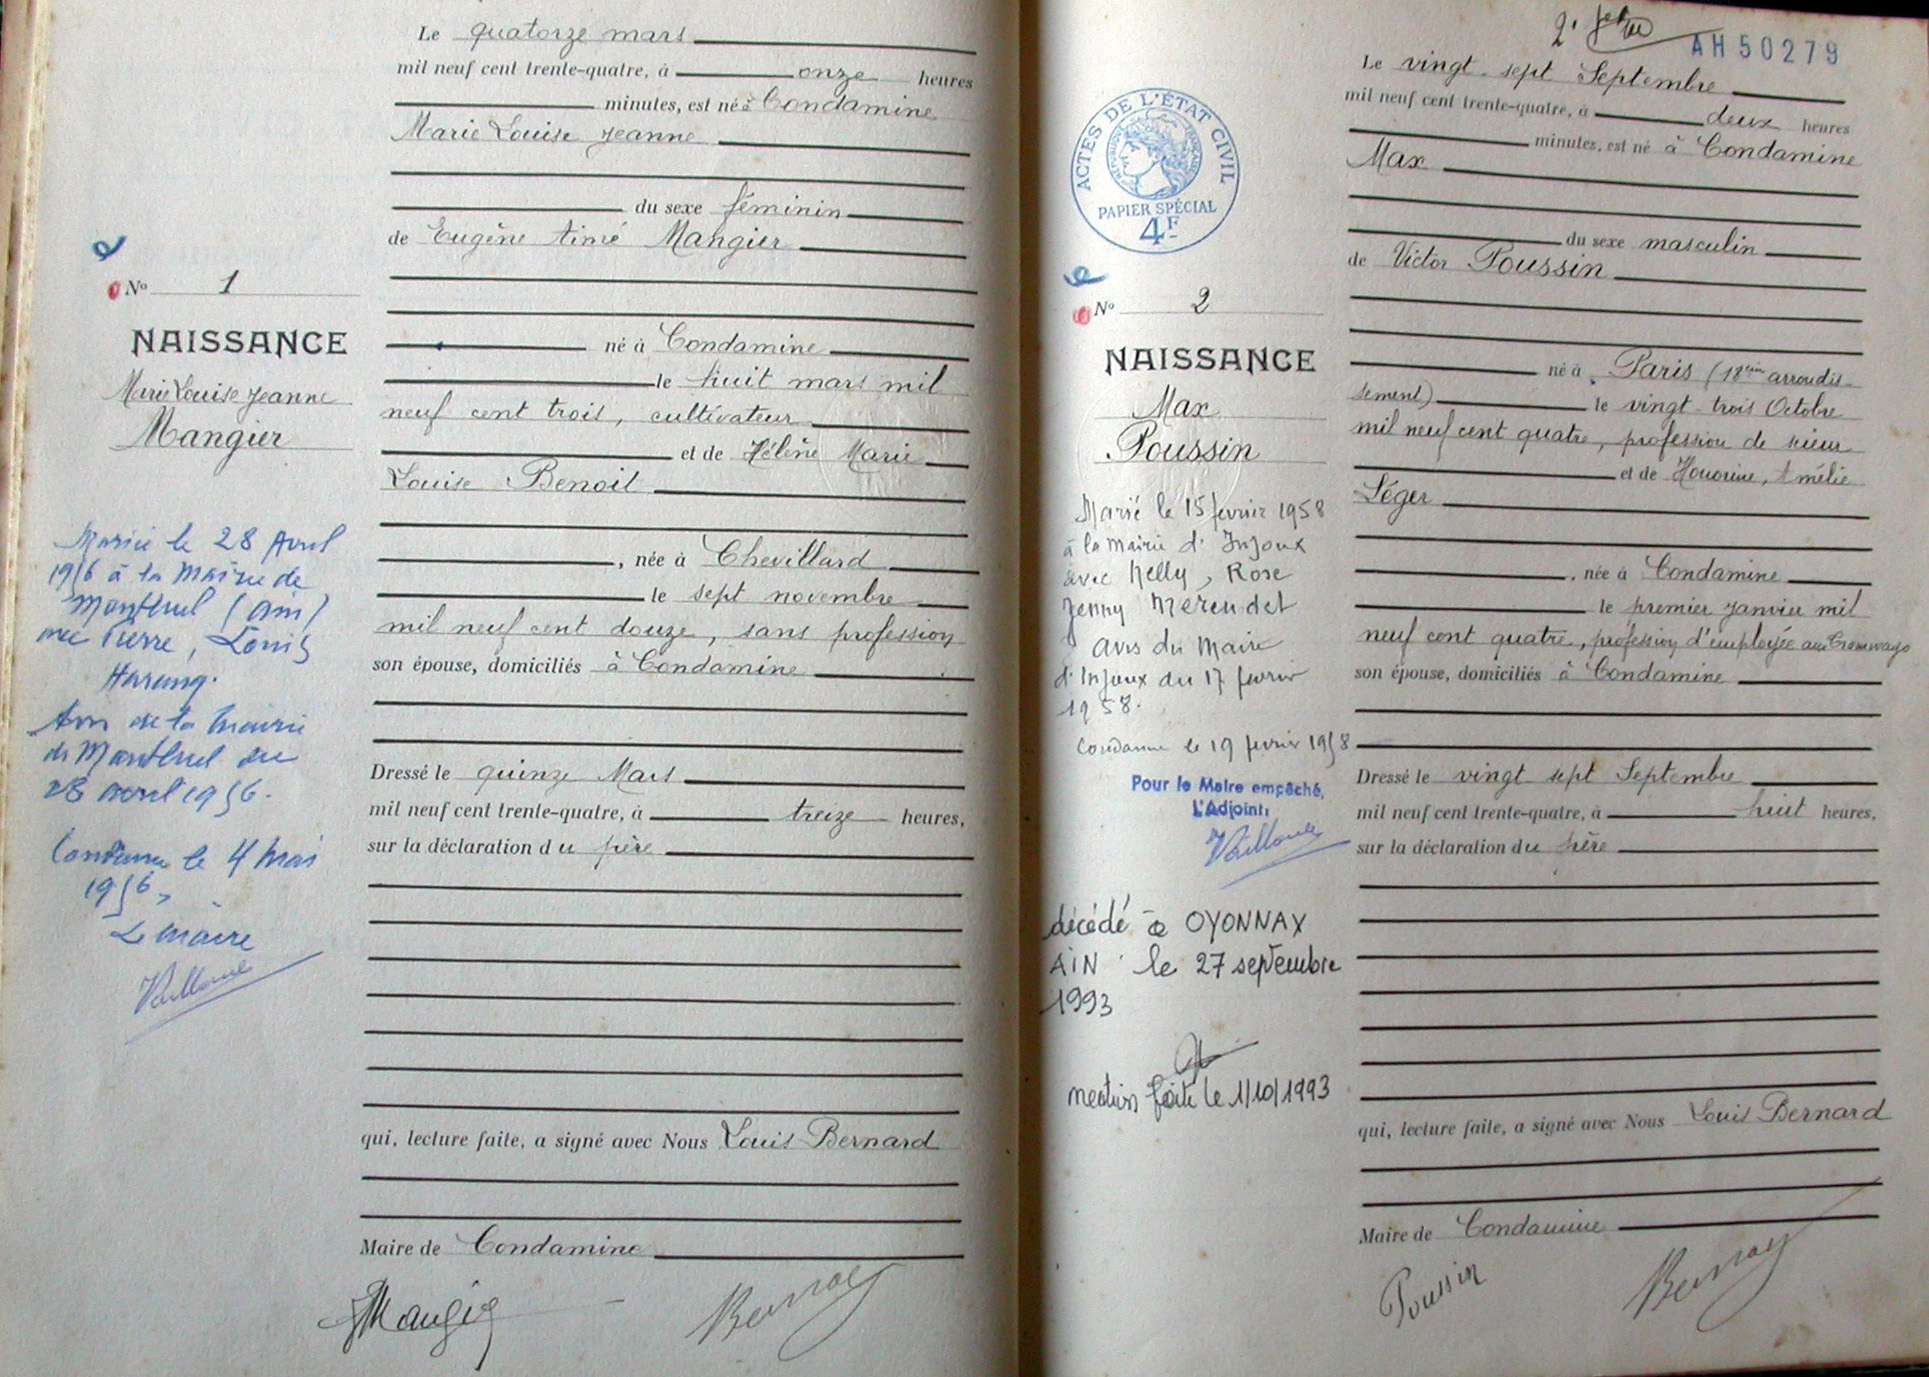 Le quatorze mars
mil neuf cent trente-quatre, à onze heures
minutes, est né à Condamine
Marie Louise Jeanne
du sexe féminin
de Eugène Aimé Mangier
né à Condamine
le huit mars mil
neuf cent trois, cultivateur
et de Hélène Marie
Louise Benoit
, née à Chevillard
le sept novembre
mil neuf cent douze, sans profession
son épouse, domiciliés à Condamine
Dressé le quinze Mars
mil neuf cent trente-quatre, à treize heures,
sur la déclaration du père
qui, lecture faite, a signé avec Nous Louis Bernard
Maire de Condamine
Mangier
Nº 1
NAISSANCE
Marie Louise Jeanne
Mangier
Mariée le 28 Avril
1956 à la Mairie de
Montluel (Ain)
avec Pierre, Louis
Harung.
Avis de la Mairie
de Montluel du
28 avril 1956.
Condamine le 4 Mai
1956,
Le Maire
AH50279
Le vingt-sept Septembre
mil neuf cent trente-quatre, à deux heures
minutes, est né à Condamine
Max
du sexe masculin
de Victor Poussin
né à Paris (18ème arrondis-
sement) le vingt-trois Octobre
mil neuf cent quatre, profession de scieur
et de Honorine, Amélie
Léger
, née à Condamine
le premier Janvier mil
neuf cent quatre, profession d'employée aux Tramways
son épouse, domiciliés à Condamine
Dressé le vingt-sept Septembre
mil neuf cent trente-quatre, à huit heures,
sur la déclaration du père
qui, lecture faite, a signé avec Nous Louis Bernard
Maire de Condamine
Poussin
ACTES DE L'ÉTAT CIVIL
RÉPUBLIQUE FRANÇAISE
PAPIER SPÉCIAL
4F
Nº 2
NAISSANCE
Max
Poussin
Marié le 15 février 1958
à la Mairie d'Injoux
avec Nelly, Rose
Jenny Merendet
avis du Maire
d'Injoux du 17 février
1958.
Condamine le 19 février 1958
Pour le Maire empêché,
L'Adjoint,
décédé à OYONNAX
AIN le 27 septembre
1993
mention faite le 1/10/1993